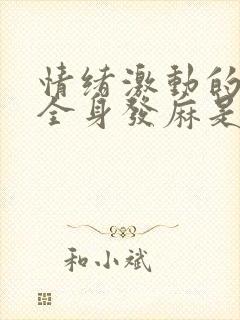 情緒激動的
全身發麻是
和小斌